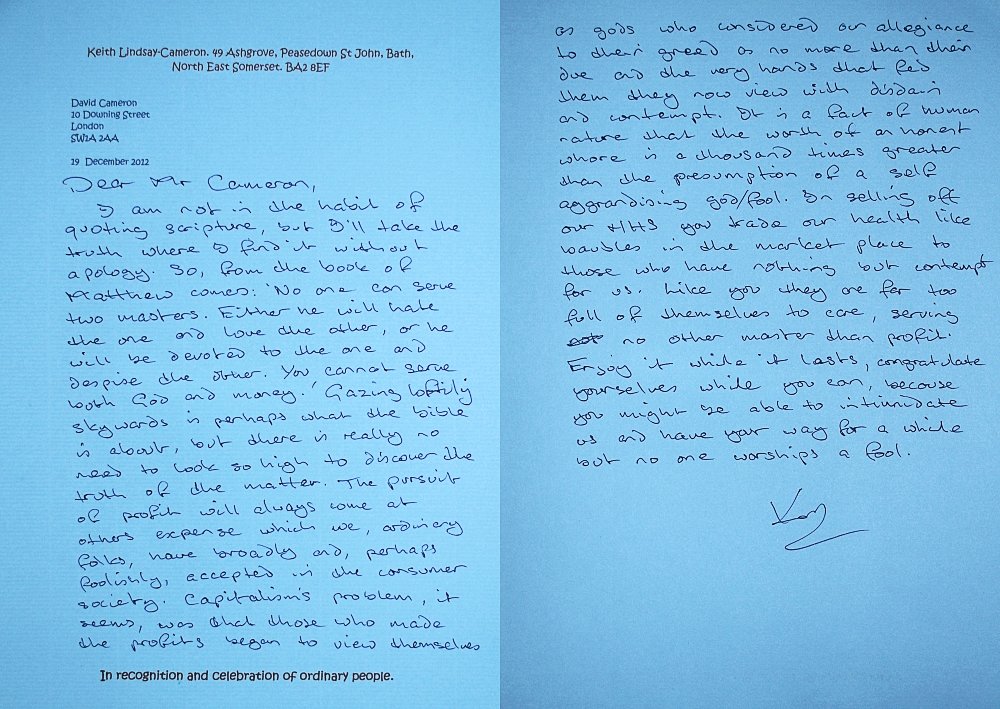 Keith Lindsay-Cameron. 49 Ashgrove, Peasedown St John, Bath,
North East Somerset. BA2 8EF
David Cameron
10 Downing Street
London
SW1A 2AA
19 December 2012
Dear Mr Cameron,
I am not in the habit of
quoting scripture, but I'll take the
truth where I find it without
apology. So, from the book of
Matthew comes: 'No one can serve
two masters. Either he will hate
the one and love the other, or he
will be devoted to the one and
despise the other. You cannot serve
both God and money.' Gazing loftily
skywards is perhaps what the bible
is about, but there is really no
need to look so high to discover the
truth of the matter. The pursuit
of profit will always come at
others expense which we, ordinary
folks, have broadly and, perhaps
foolishly, accepted in the consumer
society. Capitalism's problem, it
seems, was that those who made
the profits began to view themselves
In recognition and celebration of ordinary people.
as gods who considered our allegiance
to their greed as no more than their
due and the very hands that fed
them they now view with disdain
and contempt. It is a fact of human
nature that the worth of an honest
whore is a thousand times greater
than the presumption of a self
aggrandising god/fool. In selling off
our NHS you trade our health like
baubles in the market place to
those who have nothing but contempt
for us. Like you they are far too
full of themselves to care, serving
no other master than profit.
Enjoy it while it lasts, congratulate
yourselves while you can, because
you might be able to intimidate
us and have your way for a while
but no one worships a fool.